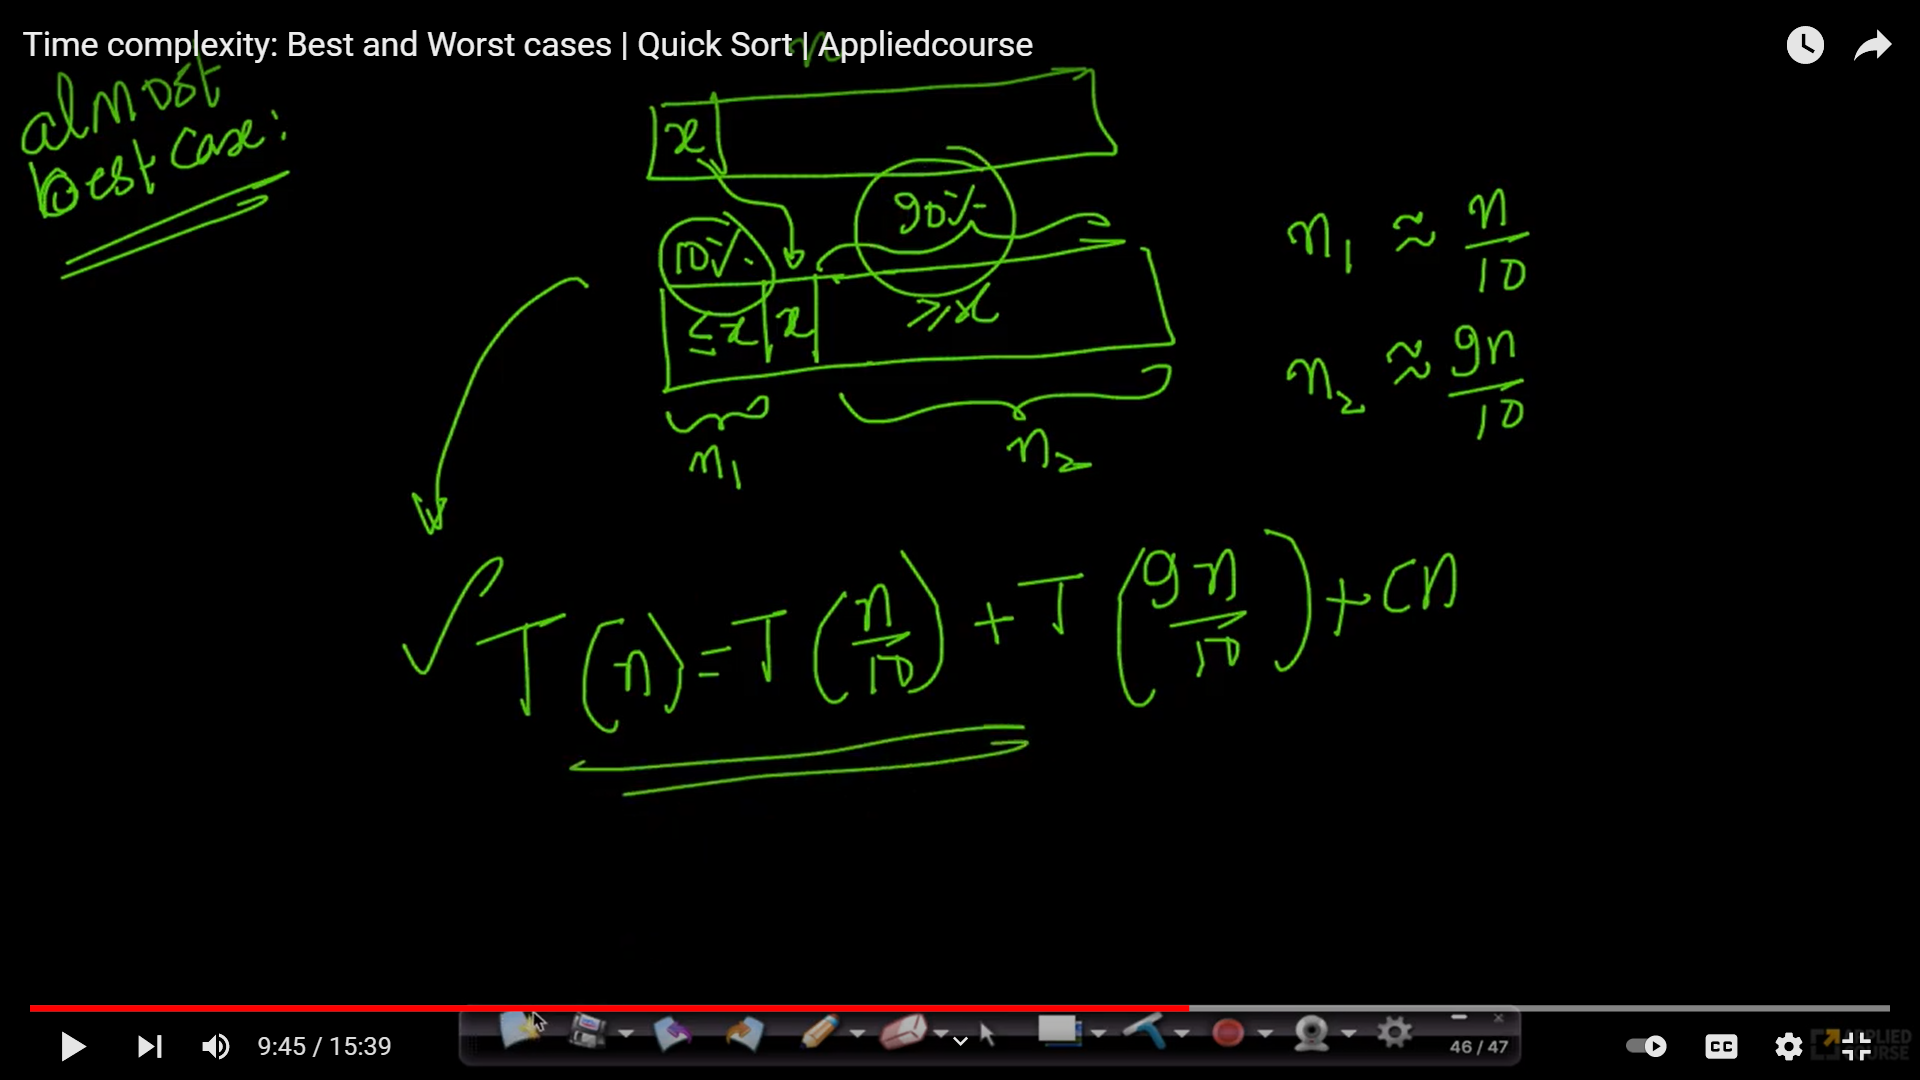 Time complexity: Best and Worst cases | Quick Sort | Appliedcourse
n
almost
best case:
x
10% 90%
≤x x ≥x
n₁ n₂
n₁ ≈ n/10
n₂ ≈ 9n/10
T(n) = T(n/10) + T(9n/10) + cn
9:45 / 15:39
46 / 47
CC
APPLIED
COURSE